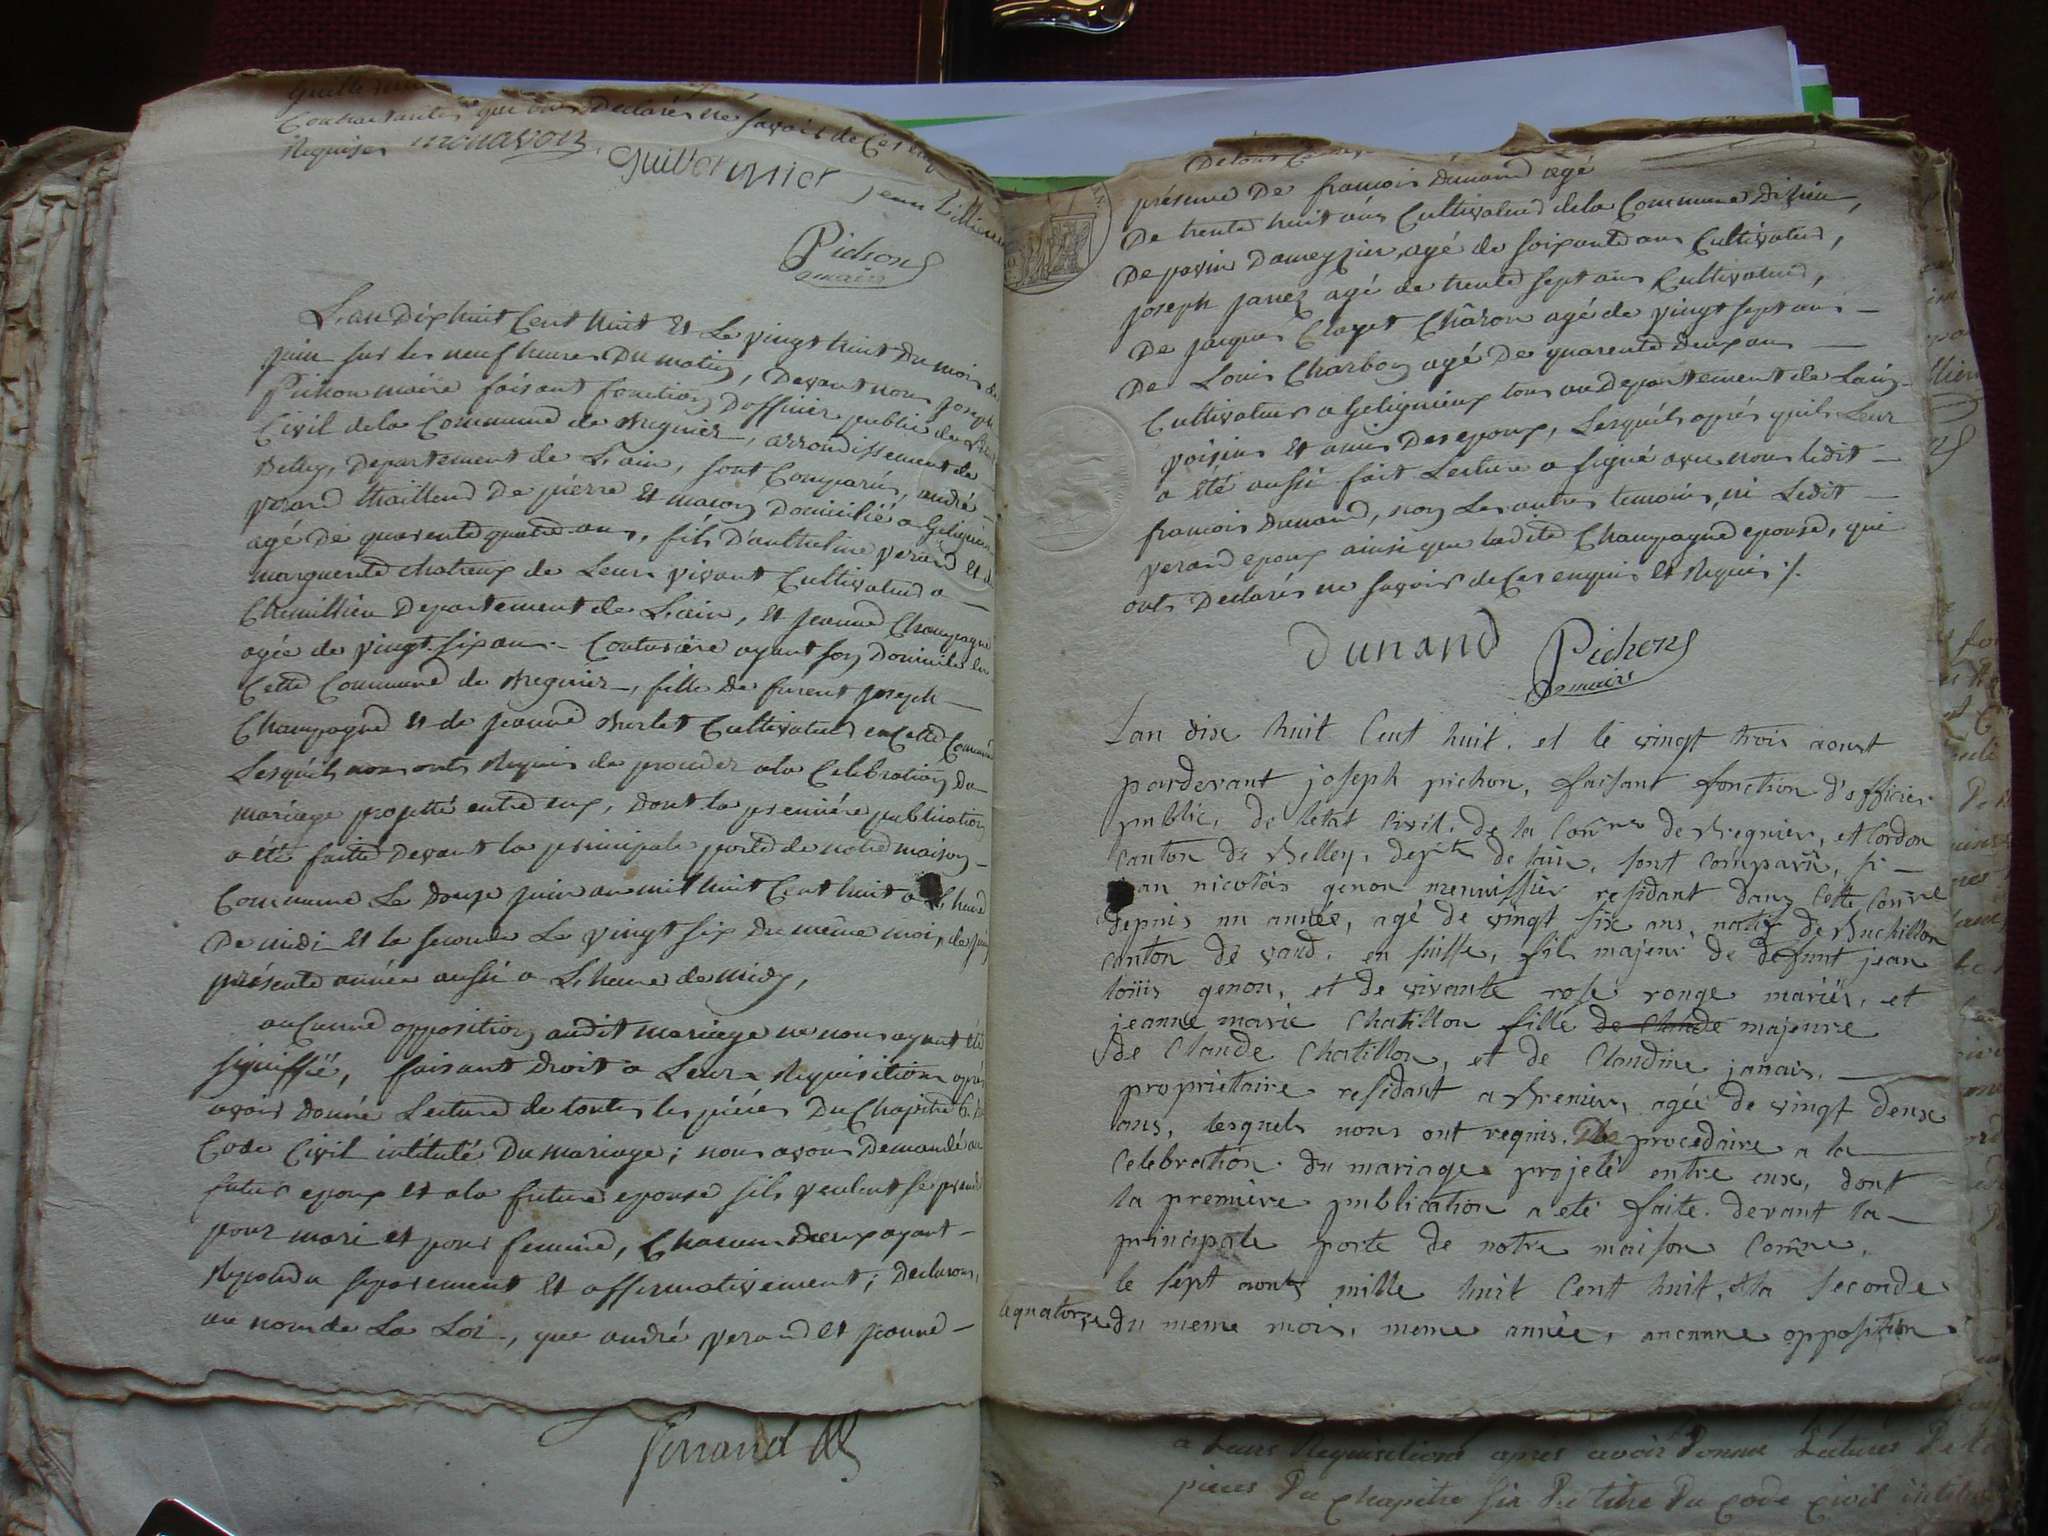 Contractantes qui ont Declarés ne savoir de ces
Requises monavon
Guillermier jean
Pichon
maire
L'an Dix huit Cent huit Et Le vingt huit Du mois de
juin sur les neuf heures Du matin, Devant nous joseph
Pichon maire faisant fonction D'officier public de L'Etat
Civil de la Commune de Bregnier, arrondissement de
Belley, Departement de L'ain, sont Comparus, andré
verand thailleur De pierre Et maçon Domicilié a Gelignieux
agé De quarente quatre ans, fils D'anthelme verand Et de
marguerite chatreux de Leur vivant Cultivateurs a
Chemillieu Departement de L'ain, Et jeanne Champagne
agée de vingt six ans Couturière ayant son Domicile en
Cette Commune de Bregnier, fille de furent joseph
Champagne Et de jeanne Burlet Cultivateurs en Cette Commune
Lesquels nous onts Requis de proceder a la Celebration du
mariage projetté entre eux, Dont la première publication
a été faite Devant la principale porte de notre maison
Commune Le Douze juin an mil huit Cent huit a L'heure
De midi Et la seconde Le vingt six du même mois, de juin
présente année aussi a L'heure de midy,
aucunne opposition audit mariage ne nous ayant été
signiffié, faisant Droit a Leurs Requisitions après
avoir donné Lecture de toutes les pièces Du Chapitre 6. du
Code Civil intitulé Du mariage; nous avons Demandé au
futur epoux et a la future epouse s'ils veulent se prendre
pour mari et pour femme, Chacun d'eux ayant
Repondu separement Et affirmativement; Declarons,
au nom de La Loi, que andré verand et jeanne
ferrand
présence De francois Dunand agé
De trente huit ans Cultivateur de la Commune Dizieu,
De pavin Dameyzier, agé de soixante ans Cultivateur,
joseph janez agé de trente sept ans Cultivateur,
De jacques Clayet Châron agé de vingt sept ans
De Louis Charbon agé De quarente deux ans
Cultivateur a Gelignieux tous au Departement de Lain,
voisins Et amis Des epoux, Lesquels après quils Leur
a été aussi fait Lecture a signé avec nous Ledit
francois Dunand, non Les autres temoins, ni Ledit
verand epoux ainsi que ladite Champagne epouse, qui
onts Declarés ne savoir de Ces enquis Et Requis ./.
Dunand Pichon
maire
Lan dix huit Cent huit. et le vingt trois aoust
pardevant joseph pichon, faisant fonction d'officier
public, de letat civil, de la Comne de Bregnier, et Cordon
Canton de Belley, dept de lain, sont comparû, si
jean nicolas genon menuissier residant dans cette comne
depuis un année, agé de vingt six ans, natif de Buchillon
Canton de vaud, en suisse, fils majeur de defunt jean
loüis genon, et de vivante rose rouge mariés, et
jeanne marie Chatillon fille de Claude majeure
de Claude Chatillon, et de Claudine janais,
proprietaire residant a Brenier, agée de vingt deux
ans, lesquels nous ont requis, De procedaire a la
Celebration du mariage projeté entre eux, dont
la première publication a eté faite devant la
principale porte de notre maison Comne.
le sept aout mille huit Cent huit, et la seconde
le quatorze du meme mois, meme année, aucunne opposition
a Leurs Requisitions apres avoir Donné Lectures De
pieces Du chapitre six Du titre Du code civil intitulé